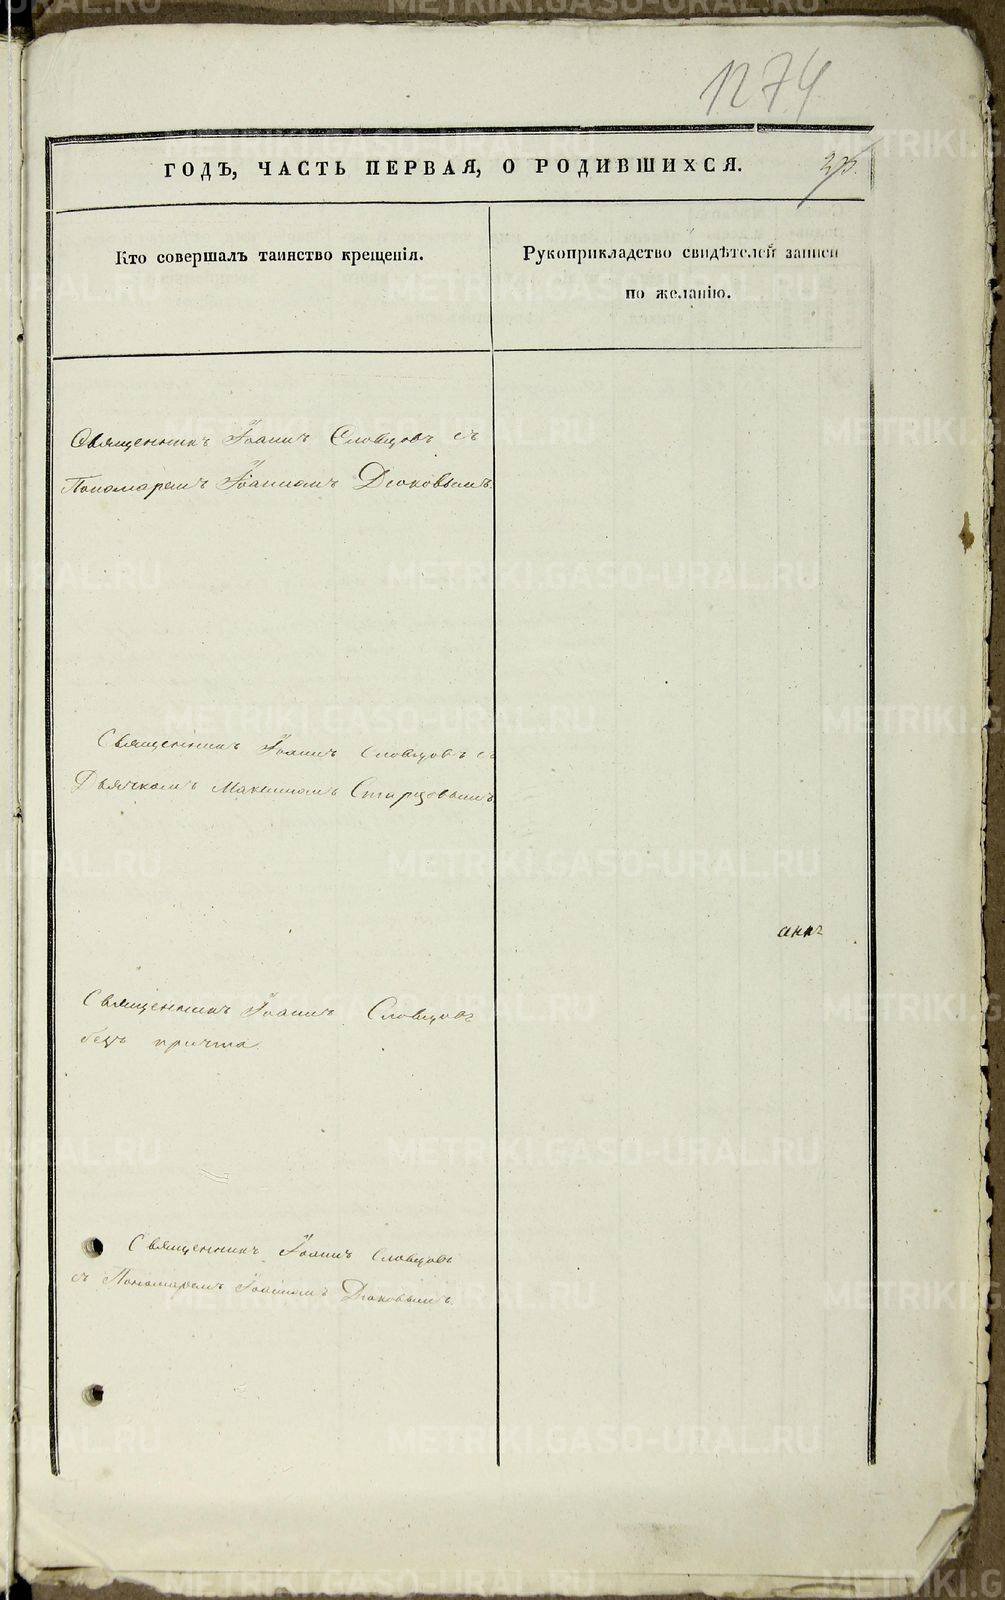 1274
ГОДЪ, ЧАСТЬ ПЕРВАЯ, О РОДИВШИХСЯ.
Кто совершалъ таинство крещенія.
Рукоприкладство свидѣтелей записи
по желанію.
Священникъ Іоаннъ Словцовъ съ
Пономаремъ Іоанномъ Дюковымъ
Священникъ Іоаннъ Словцовъ съ
Дьячкомъ Максимомъ Старцовымъ
Священникъ Іоаннъ Словцовъ
безъ причта
Священникъ Іоаннъ Словцовъ
съ Пономаремъ Іоанномъ Дюковымъ.
METRIKI.GASO-URAL.RU